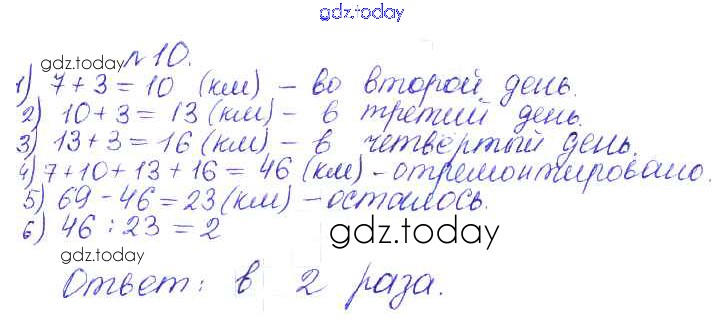 gdz.today
gdz.today №10.
1) 7+3=10 (км) – во второй день.
2) 10+3=13 (км) – в третий день.
3) 13+3=16 (км) – в четвёртый день.
4) 7+10+13+16=46 (км) – отремонтировано.
5) 69-46=23 (км) – осталось.
6) 46:23=2
gdz.today
gdz.today
Ответ: в 2 раза.